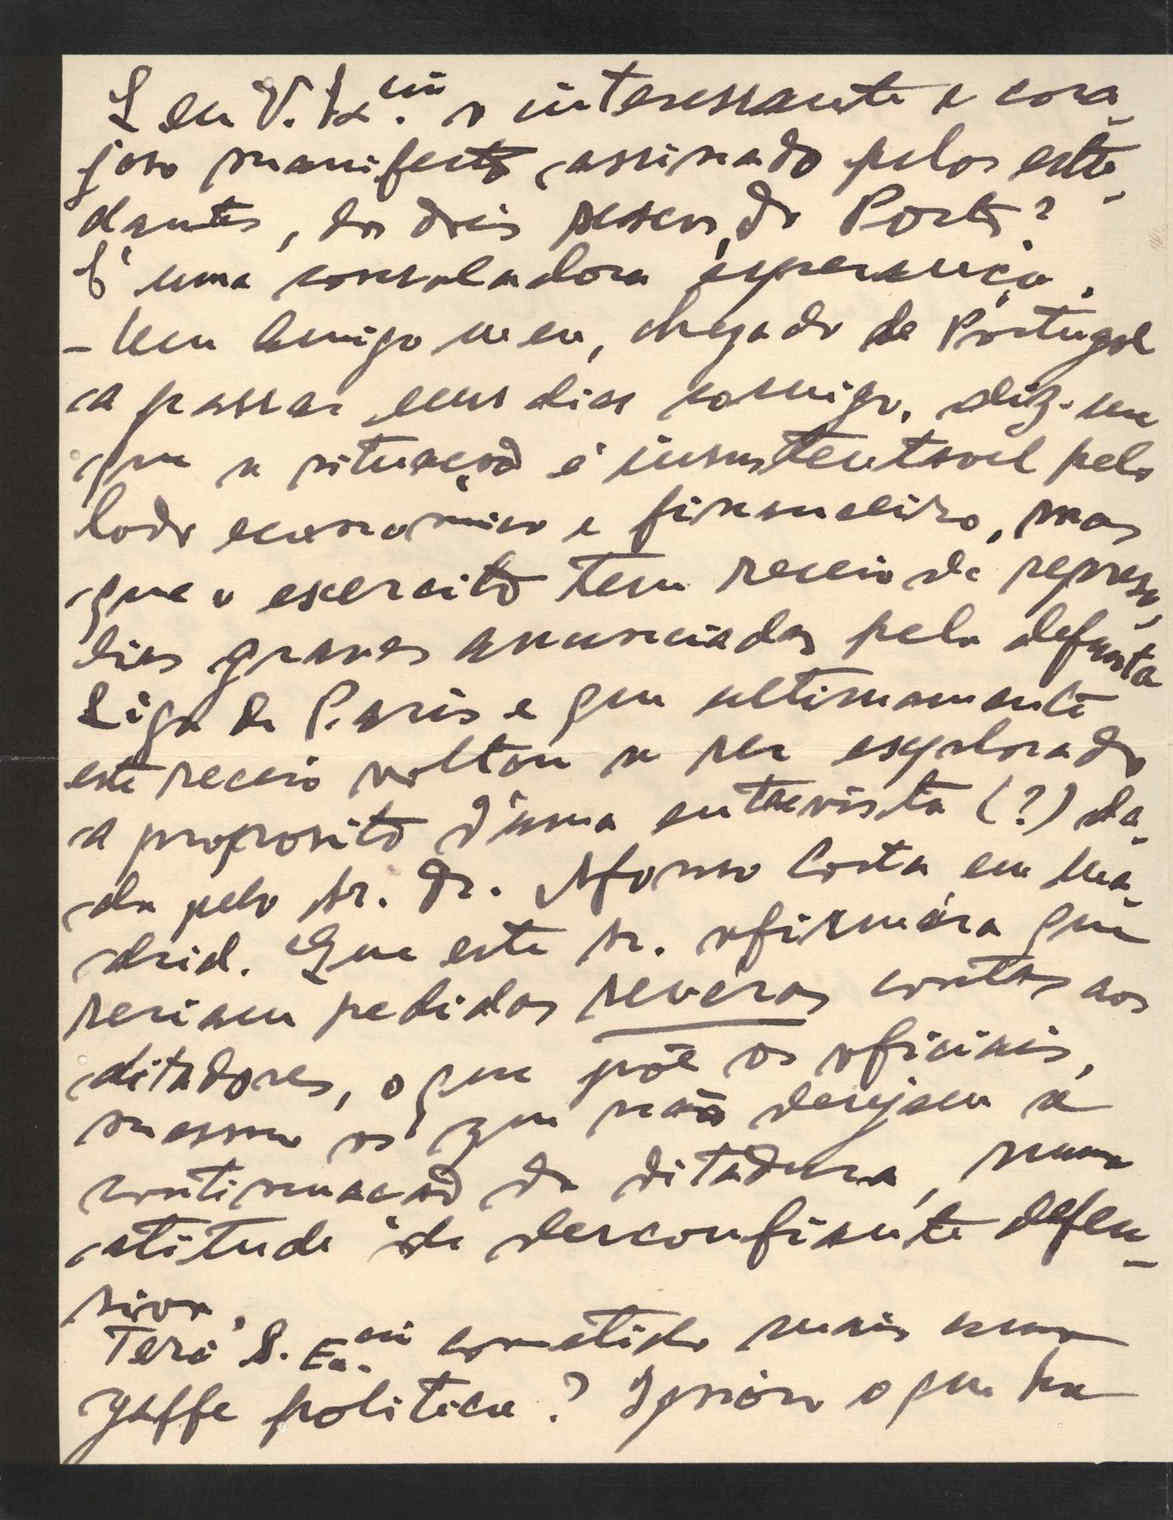 Leu V. Ex.cia o interessante e cora-
joso manifesto assinado pelos estu-
dantes, do Porto?
É uma consoladora esperança.
- Um amigo meu, chegado de Portugal
a passar uns dias comigo, diz-me
que a situação é insustentavel pelo
lado economico e financeiro, mas
que o exercito tem receio de represa-
lias graves anunciadas pela defunta
Liga de Paris e que ultimamente
este receio voltou a ser explorado
a proposito d'uma entrevista (?) da-
da pelo Sr. Dr. Afonso Costa em Ma-
drid. Que este sr. afirmára que
seriam pedidas severas contas aos
ditadores, o que põe os oficiais,
mesmo os que não desejam a
continuação da ditadura, numa
atitude de desconfiante defen-
siva.
Terá S. Ex.cia cometido mais uma
gaffe politica? Ignoro o que ha